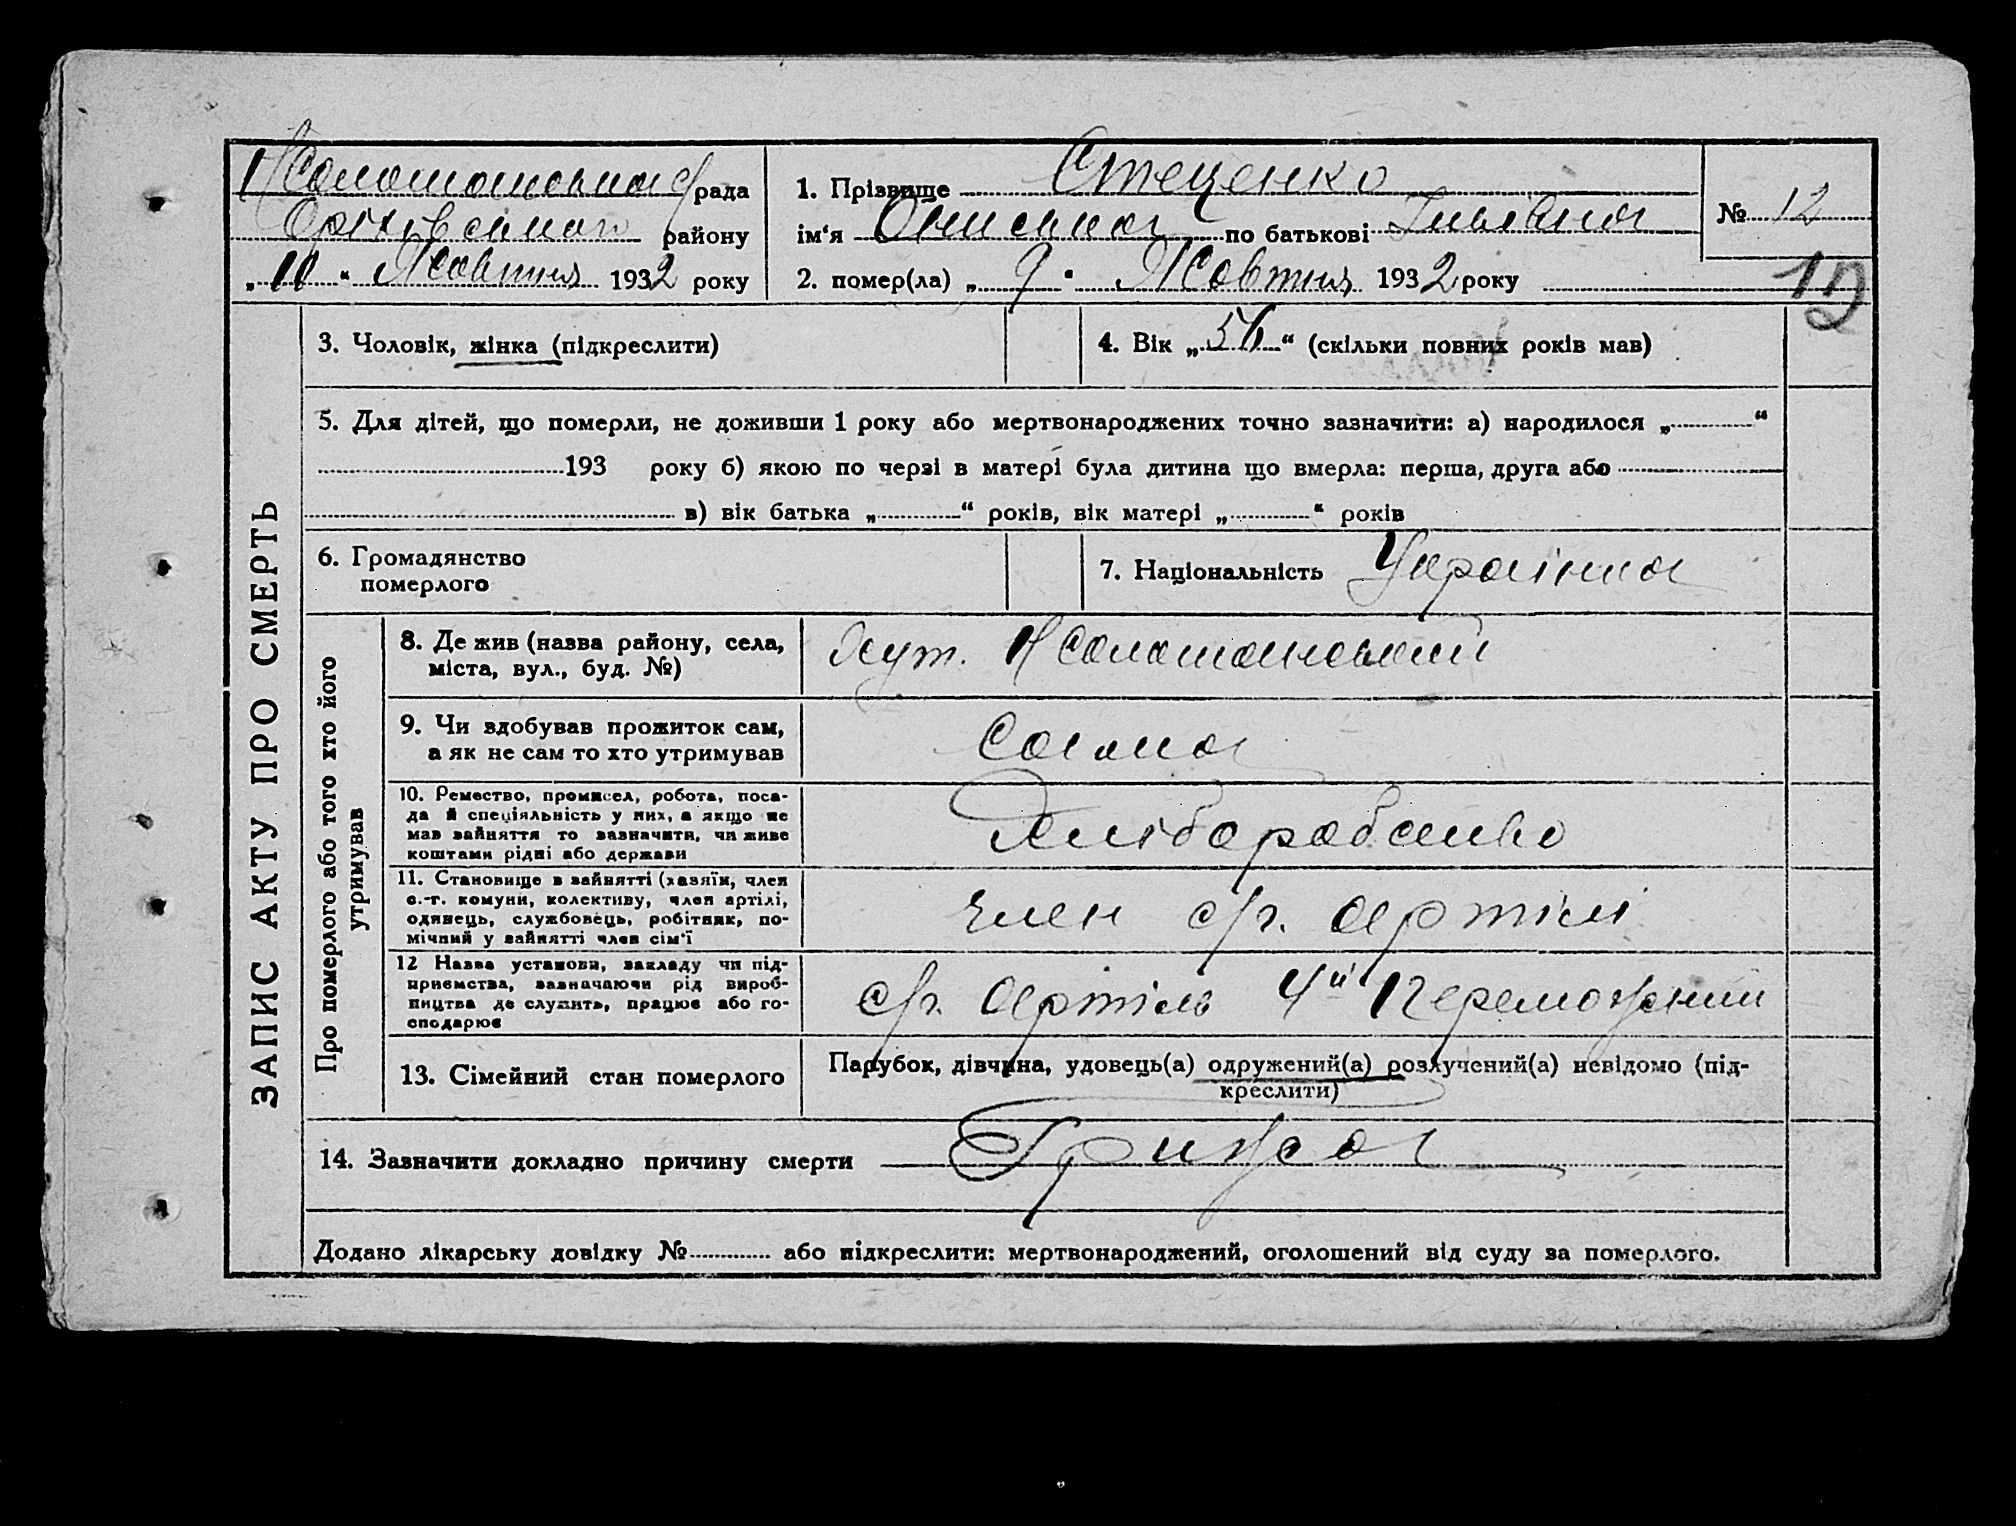 Солошанська с/рада
Оріхівського району
„ 10 “ Жовтня 1932 року
1. Прізвище Стеценко
ім‘я Ониська по батькові
2. помер(ла) „ 9 “ Жовтня 1932 року
№ 12
12
ЗАПИС АКТУ ПРО СМЕРТЬ
3. Чоловік, жінка (підкреслити)
4. Вік „ 56 “ (скільки повних років мав)
5. Для дітей, що померли, не доживши 1 року або мертвонароджених точно зазначити: а) народилося „ “
193 року б) якою по черзі в матері була дитина що вмерла: перша, друга або
в) вік батька „ “ років, вік матері „ “ років
6. Громадянство
померлого
7. Національність Українка
Про померлого або того хто його
утримував
8. Де жив (назва району, села,
міста, вул., буд. №)
Хут. Солошанський
9. Чи здобував прожиток сам,
а як не сам то хто утримував
Сама
10. Ремество, промисел, робота, поса-
да й спеціяльність у них, а якщо не
мав зайняття то зазначити, чи живе
коштами рідні або держави
Хліборобство
11. Становище в зайнятті (хазяїн, член
с.-г. комуни, колективу, член артілі,
одинець, службовець, робітник, по-
мічний у зайнятті член сім‘ї
член с/г. артілі
12 Назва установи, закладу чи під-
приємства, зазначаючи рід вироб-
ництва де служить, працює або го-
сподарює
с/г. Артіль 4й Переможний
13. Сімейний стан померлого
Парубок, дівчина, удовець(а) одружений(а) розлучений(а) невідомо (під-
креслити)
14. Зазначити докладно причину смерти Грижа
Додано лікарську довідку № або підкреслити: мертвонароджений, оголошений від суду за померлого.